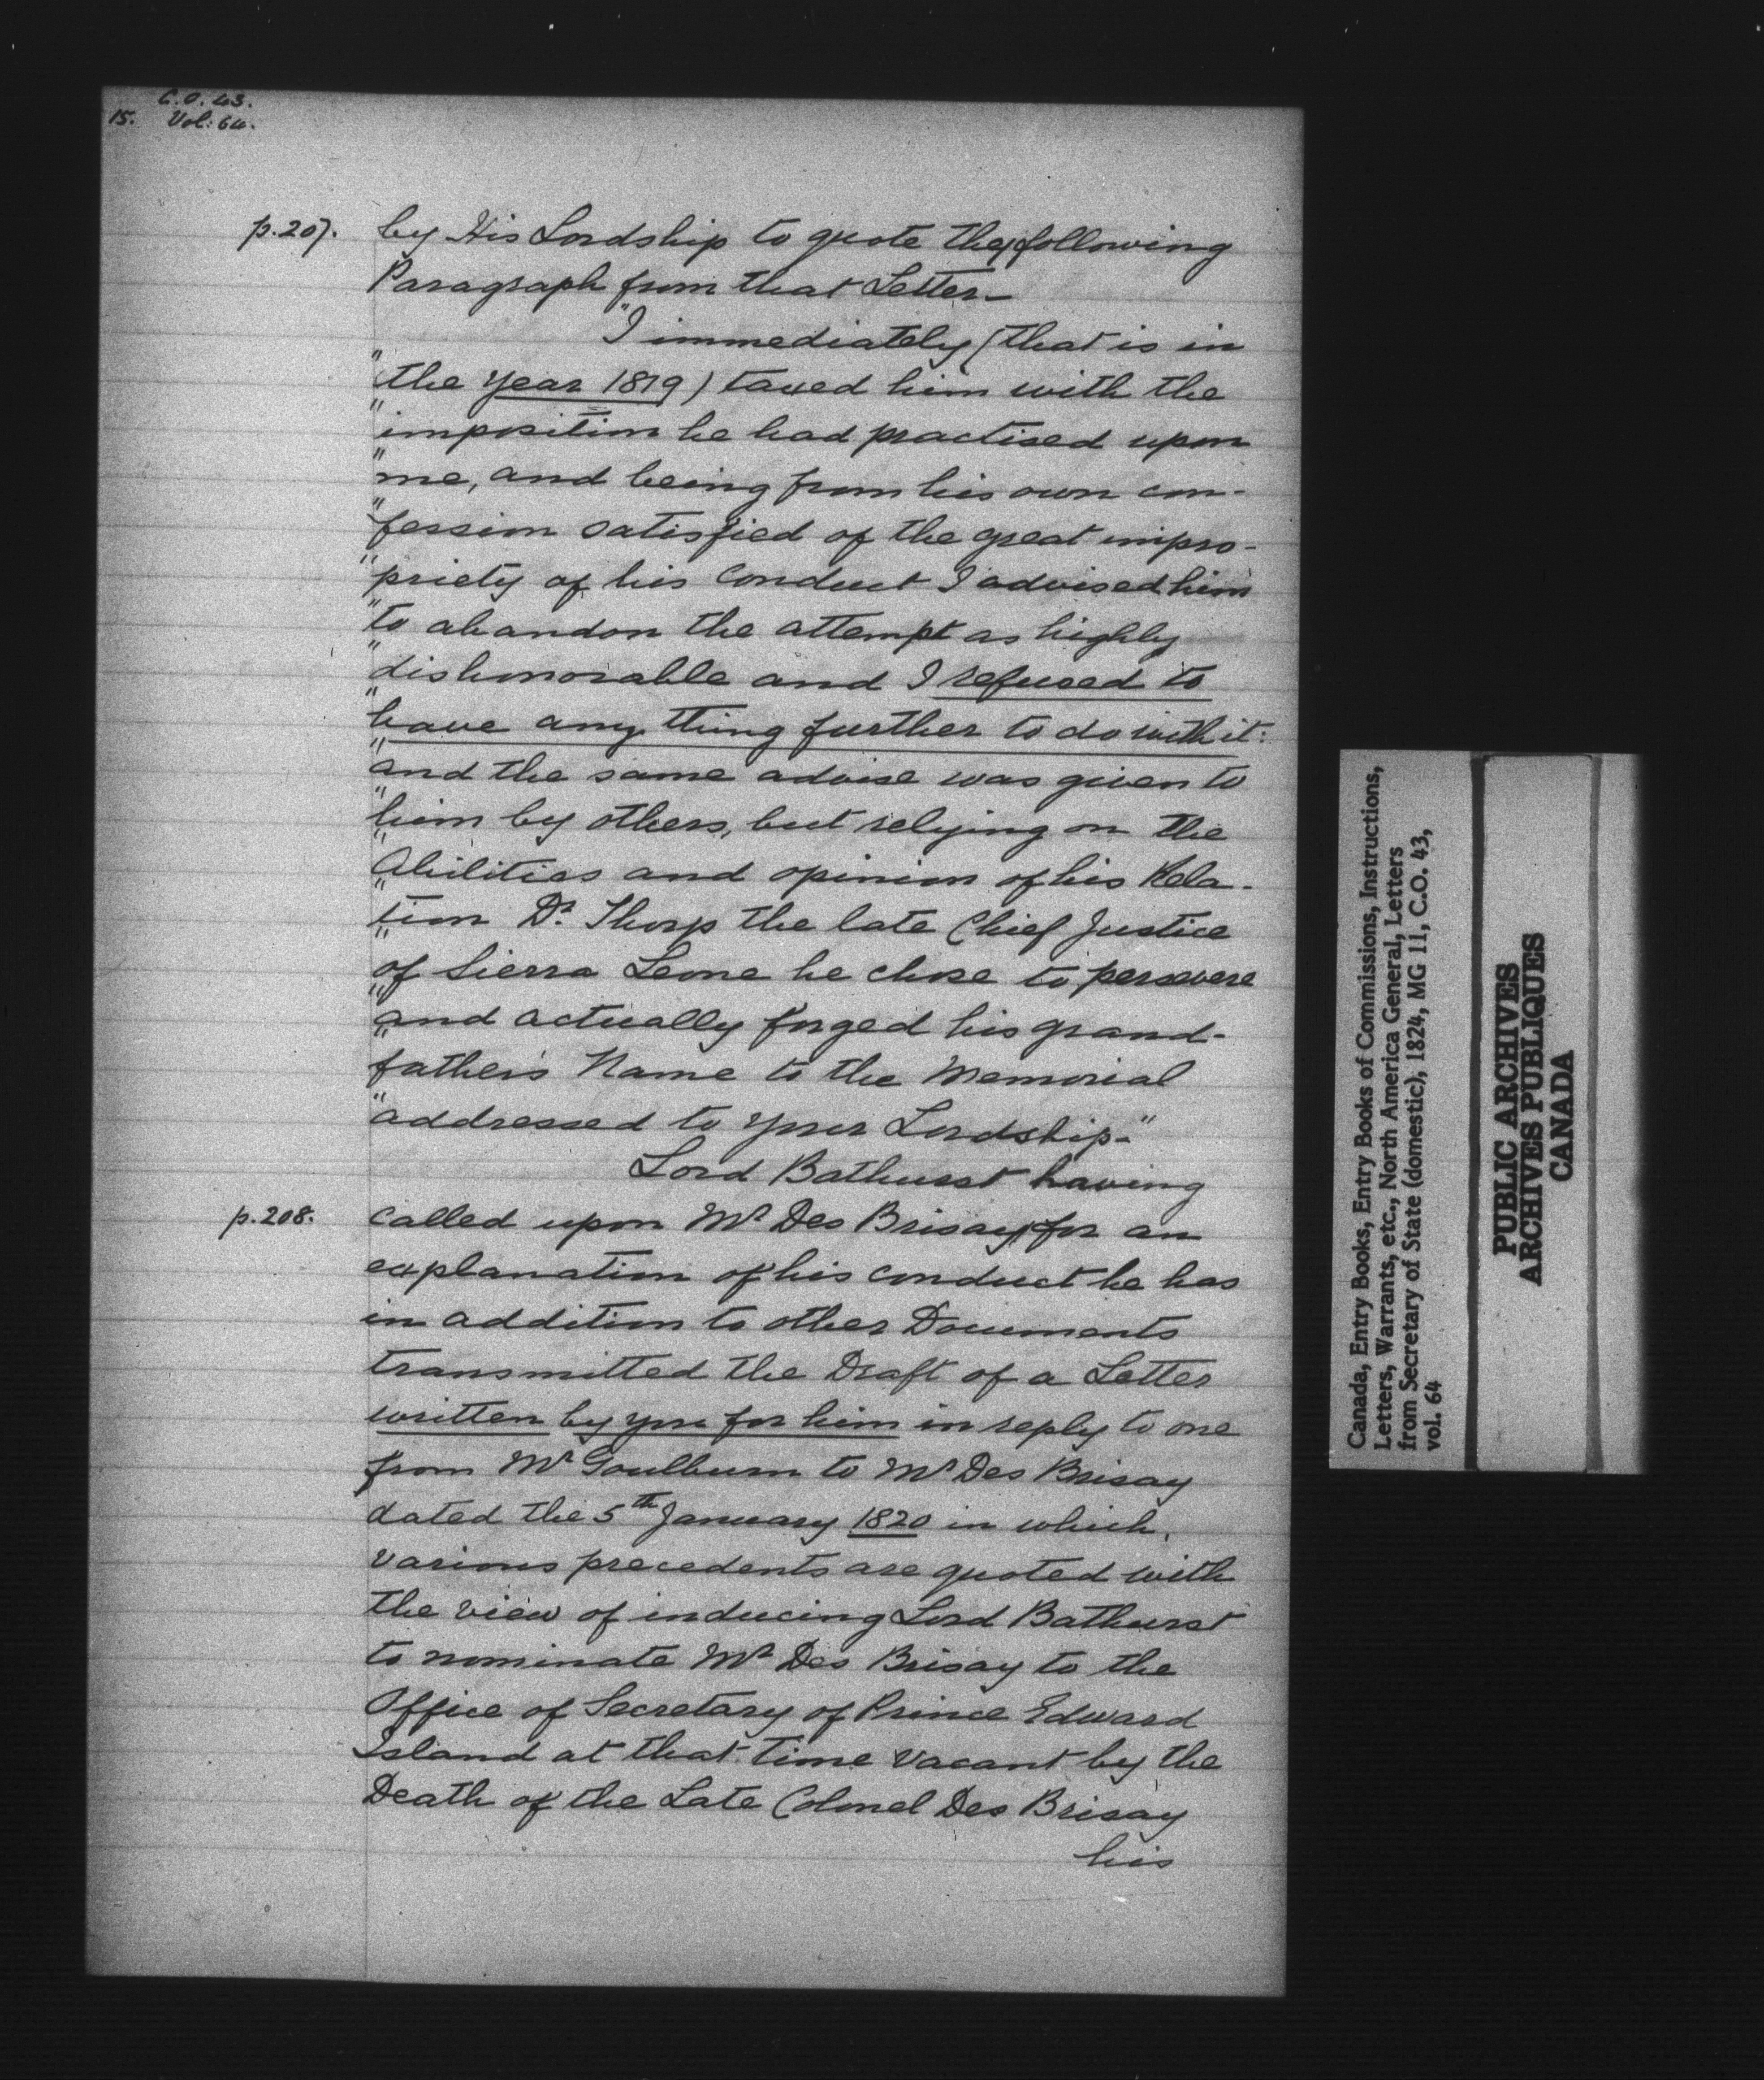 C.O. 43.
15. Vol: 64.
p.207. by His Lordship to quote the/following
Paragraph from that Letter—
"I immediately (that is in
"the year 1819) taxed him with the
"imposition he had practised upon
"me, and being from his own con-
"fession satisfied of the great impro-
"priety of his conduct I advised him
"to abandon the attempt as highly
"dishonorable and I refused to
"have any thing further to do with it:
"and the same advise was given to
"him by others, but relying on the
"Abilities and opinion of his Rela-
"tion Dr. Thorp the late Chief Justice
"of Sierra Leone he chose to persevere
"and actually forged his grand-
father's Name to the Memorial
"addressed to your Lordship."
Lord Bathurst having
p.208. called upon Mr Des Brisay/for an
explanation of his conduct he has
in addition to other Documents
transmitted the Draft of a Letter
written by you for him in reply to one
from Mr Goulburn to Mr Des Brisay
dated the 5th January 1820 in which
various precedents are quoted with
the view of inducing Lord Bathurst
to nominate Mr Des Brisay to the
Office of Secretary of Prince Edward
Island at that time vacant by the
Death of the Late Colonel Des Brisay
his
Canada, Entry Books, Entry Books of Commissions, Instructions,
Letters, Warrants, etc., North America General, Letters
from Secretary of State (domestic), 1824, MG 11, C.O. 43,
vol. 64
PUBLIC ARCHIVES
ARCHIVES PUBLIQUES
CANADA